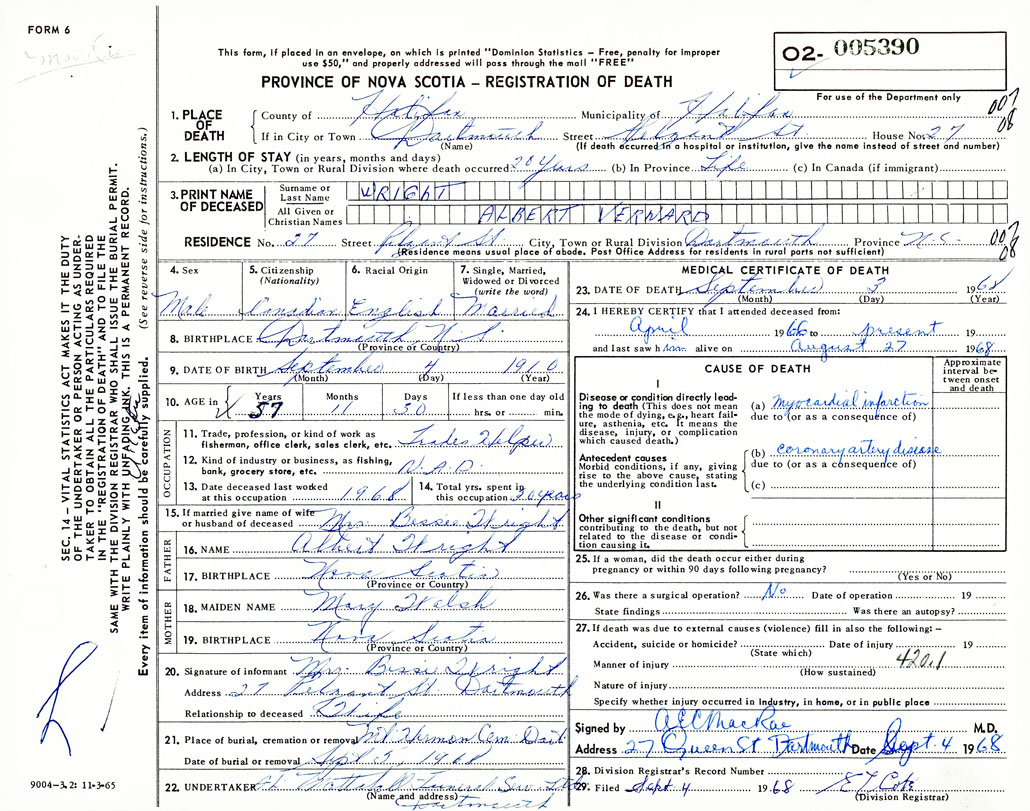 FORM 6
This form, if placed in an envelope, on which is printed "Dominion Statistics – Free, penalty for improper
use $50," and properly addressed will pass through the mail "FREE"
O2- 005390
For use of the Department only
PROVINCE OF NOVA SCOTIA – REGISTRATION OF DEATH
007
08
1. PLACE OF DEATH
County of Halifax Municipality of Halifax
If in City or Town Dartmouth Street St House No. 27
(Name) (If death occurred in a hospital or institution, give the name instead of street and number)
2. LENGTH OF STAY (in years, months and days)
(a) In City, Town or Rural Division where death occurred 20 years (b) In Province Life (c) In Canada (if immigrant)
3. PRINT NAME OF DECEASED
Surname or Last Name WRIGHT
All Given or Christian Names ALBERT VERNARD
RESIDENCE No. 27 Street St. City, Town or Rural Division Dartmouth Province N.S. 007
08
(Residence means usual place of abode. Post Office Address for residents in rural parts not sufficient)
4. Sex Male
5. Citizenship (Nationality) Canadian
6. Racial Origin English
7. Single, Married, Widowed or Divorced (write the word) Married
8. BIRTHPLACE Dartmouth N.S.
(Province or Country)
9. DATE OF BIRTH September 4 1910
(Month) (Day) (Year)
10. AGE in Years 57 Months 11 Days 30 If less than one day old hrs. or min.
OCCUPATION
11. Trade, profession, or kind of work as fisherman, office clerk, sales clerk, etc. Trades Helper
12. Kind of industry or business, as fishing, bank, grocery store, etc. N.A.D.
13. Date deceased last worked at this occupation 1968
14. Total yrs. spent in this occupation 30 years
15. If married give name of wife or husband of deceased Mrs. Bessie Wright
FATHER
16. NAME Albert Wright
17. BIRTHPLACE Nova Scotia
(Province or Country)
MOTHER
18. MAIDEN NAME Mary Walsh
19. BIRTHPLACE Nova Scotia
(Province or Country)
20. Signature of informant Mrs. Bessie Wright
Address 27 St. Dartmouth
Relationship to deceased Wife
21. Place of burial, cremation or removal Mt Hermon Cem. Dart
Date of burial or removal Sept 5, 1968
22. UNDERTAKER Funeral Ser. Ltd
(Name and address) Dartmouth
MEDICAL CERTIFICATE OF DEATH
23. DATE OF DEATH September 3 1968
(Month) (Day) (Year)
24. I HEREBY CERTIFY that I attended deceased from:
April 1966 to present 19
and last saw him alive on August 27 1968
CAUSE OF DEATH
Approximate interval between onset and death
I
Disease or condition directly leading to death (This does not mean the mode of dying, e.g., heart failure, asthenia, etc. It means the disease, injury, or complication which caused death.)
(a) myocardial infarction
due to (or as a consequence of)
Antecedent causes
Morbid conditions, if any, giving rise to the above cause, stating the underlying condition last.
(b) coronary artery disease
due to (or as a consequence of)
(c)
II
Other significant conditions
contributing to the death, but not related to the disease or condition causing it.
25. If a woman, did the death occur either during
pregnancy or within 90 days following pregnancy?
(Yes or No)
26. Was there a surgical operation? No Date of operation 19
State findings Was there an autopsy?
27. If death was due to external causes (violence) fill in also the following: –
Accident, suicide or homicide? Date of injury 19
(State which)
Manner of injury 420.1
(How sustained)
Nature of injury
Specify whether injury occurred in industry, in home, or in public place
Signed by A E C MacRae M.D.
Address 27 Queen St Dartmouth Date Sept. 4 1968
28. Division Registrar's Record Number
29. Filed Sept. 4 1968
(Division Registrar)
SEC. 14 – VITAL STATISTICS ACT MAKES IT THE DUTY
OF THE UNDERTAKER OR PERSON ACTING AS UNDER-
TAKER TO OBTAIN ALL THE PARTICULARS REQUIRED
IN THE "REGISTRATION OF DEATH" AND TO FILE THE
SAME WITH THE DIVISION REGISTRAR WHO SHALL ISSUE THE BURIAL PERMIT.
WRITE PLAINLY WITH UNFADING INK. THIS IS A PERMANENT RECORD.
Every item of information should be carefully supplied. (See reverse side for instructions.)
9004–3.2: 11-3-65